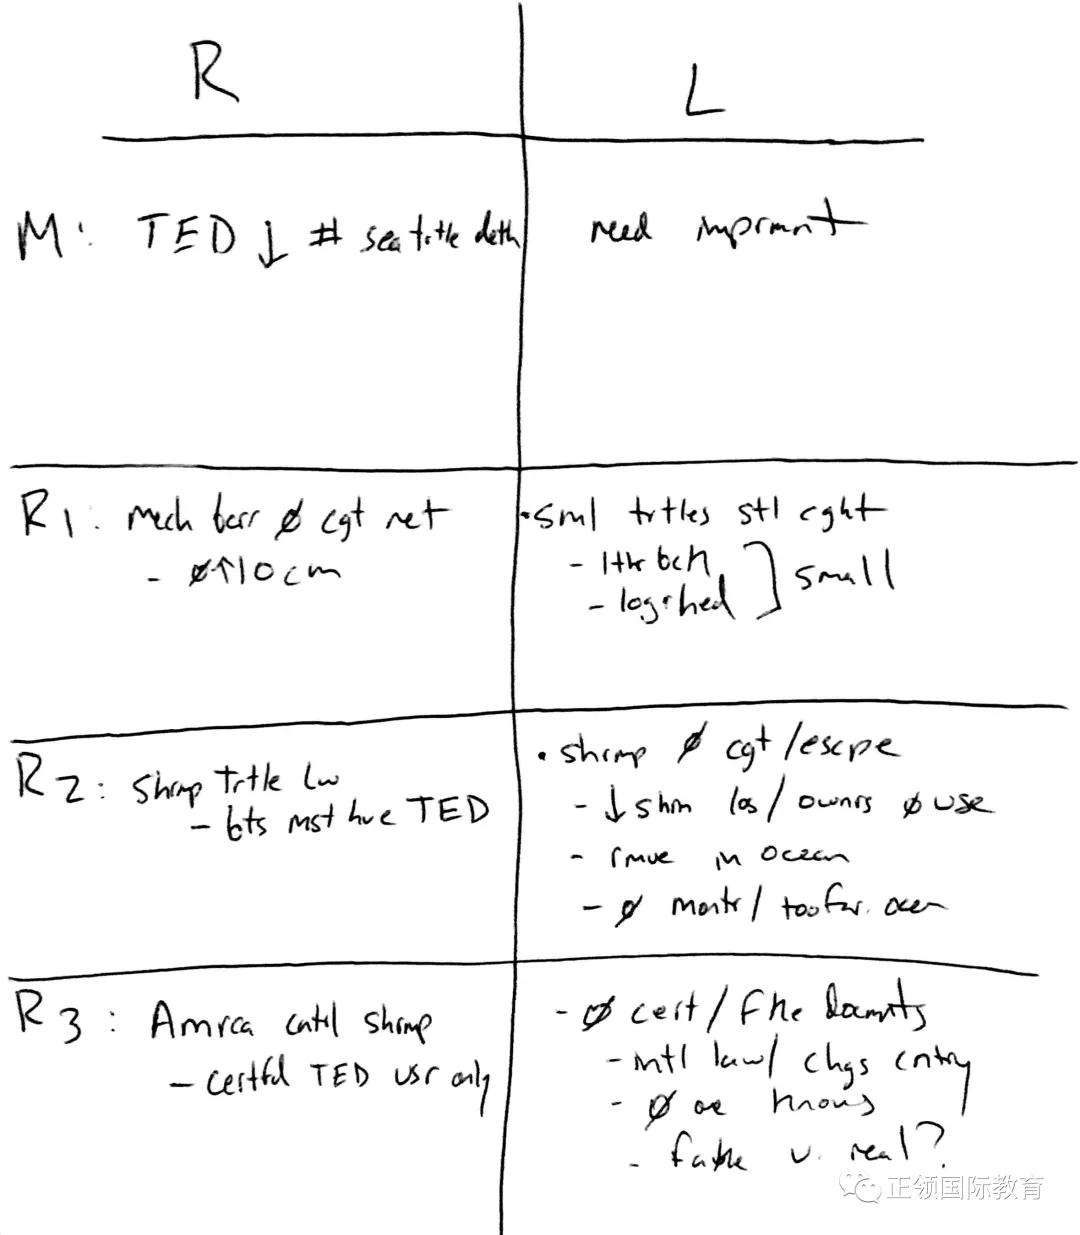 R
L
M: TED ↓ # sea trtle deth
need imprmnt
R1: mech barr ∅ cgt net
- ∅↑10 cm
• sml trtles stl cght
- lthr bck
- logrhed
} small
R2: Shrmp Trtle Lw
- bts mst hve TED
• shrmp ∅ cgt/escpe
- ↓ shrm los/ownrs ∅ use
- rmve in ocean
- ∅ montr/too far. ocen
R3: Amrca cntrl shrmp
- certfd TED usr only
- ∅ cert/fke Documts
- intl law/chgs cntry
- ∅ one knows
- fake v. real?
正领国际教育